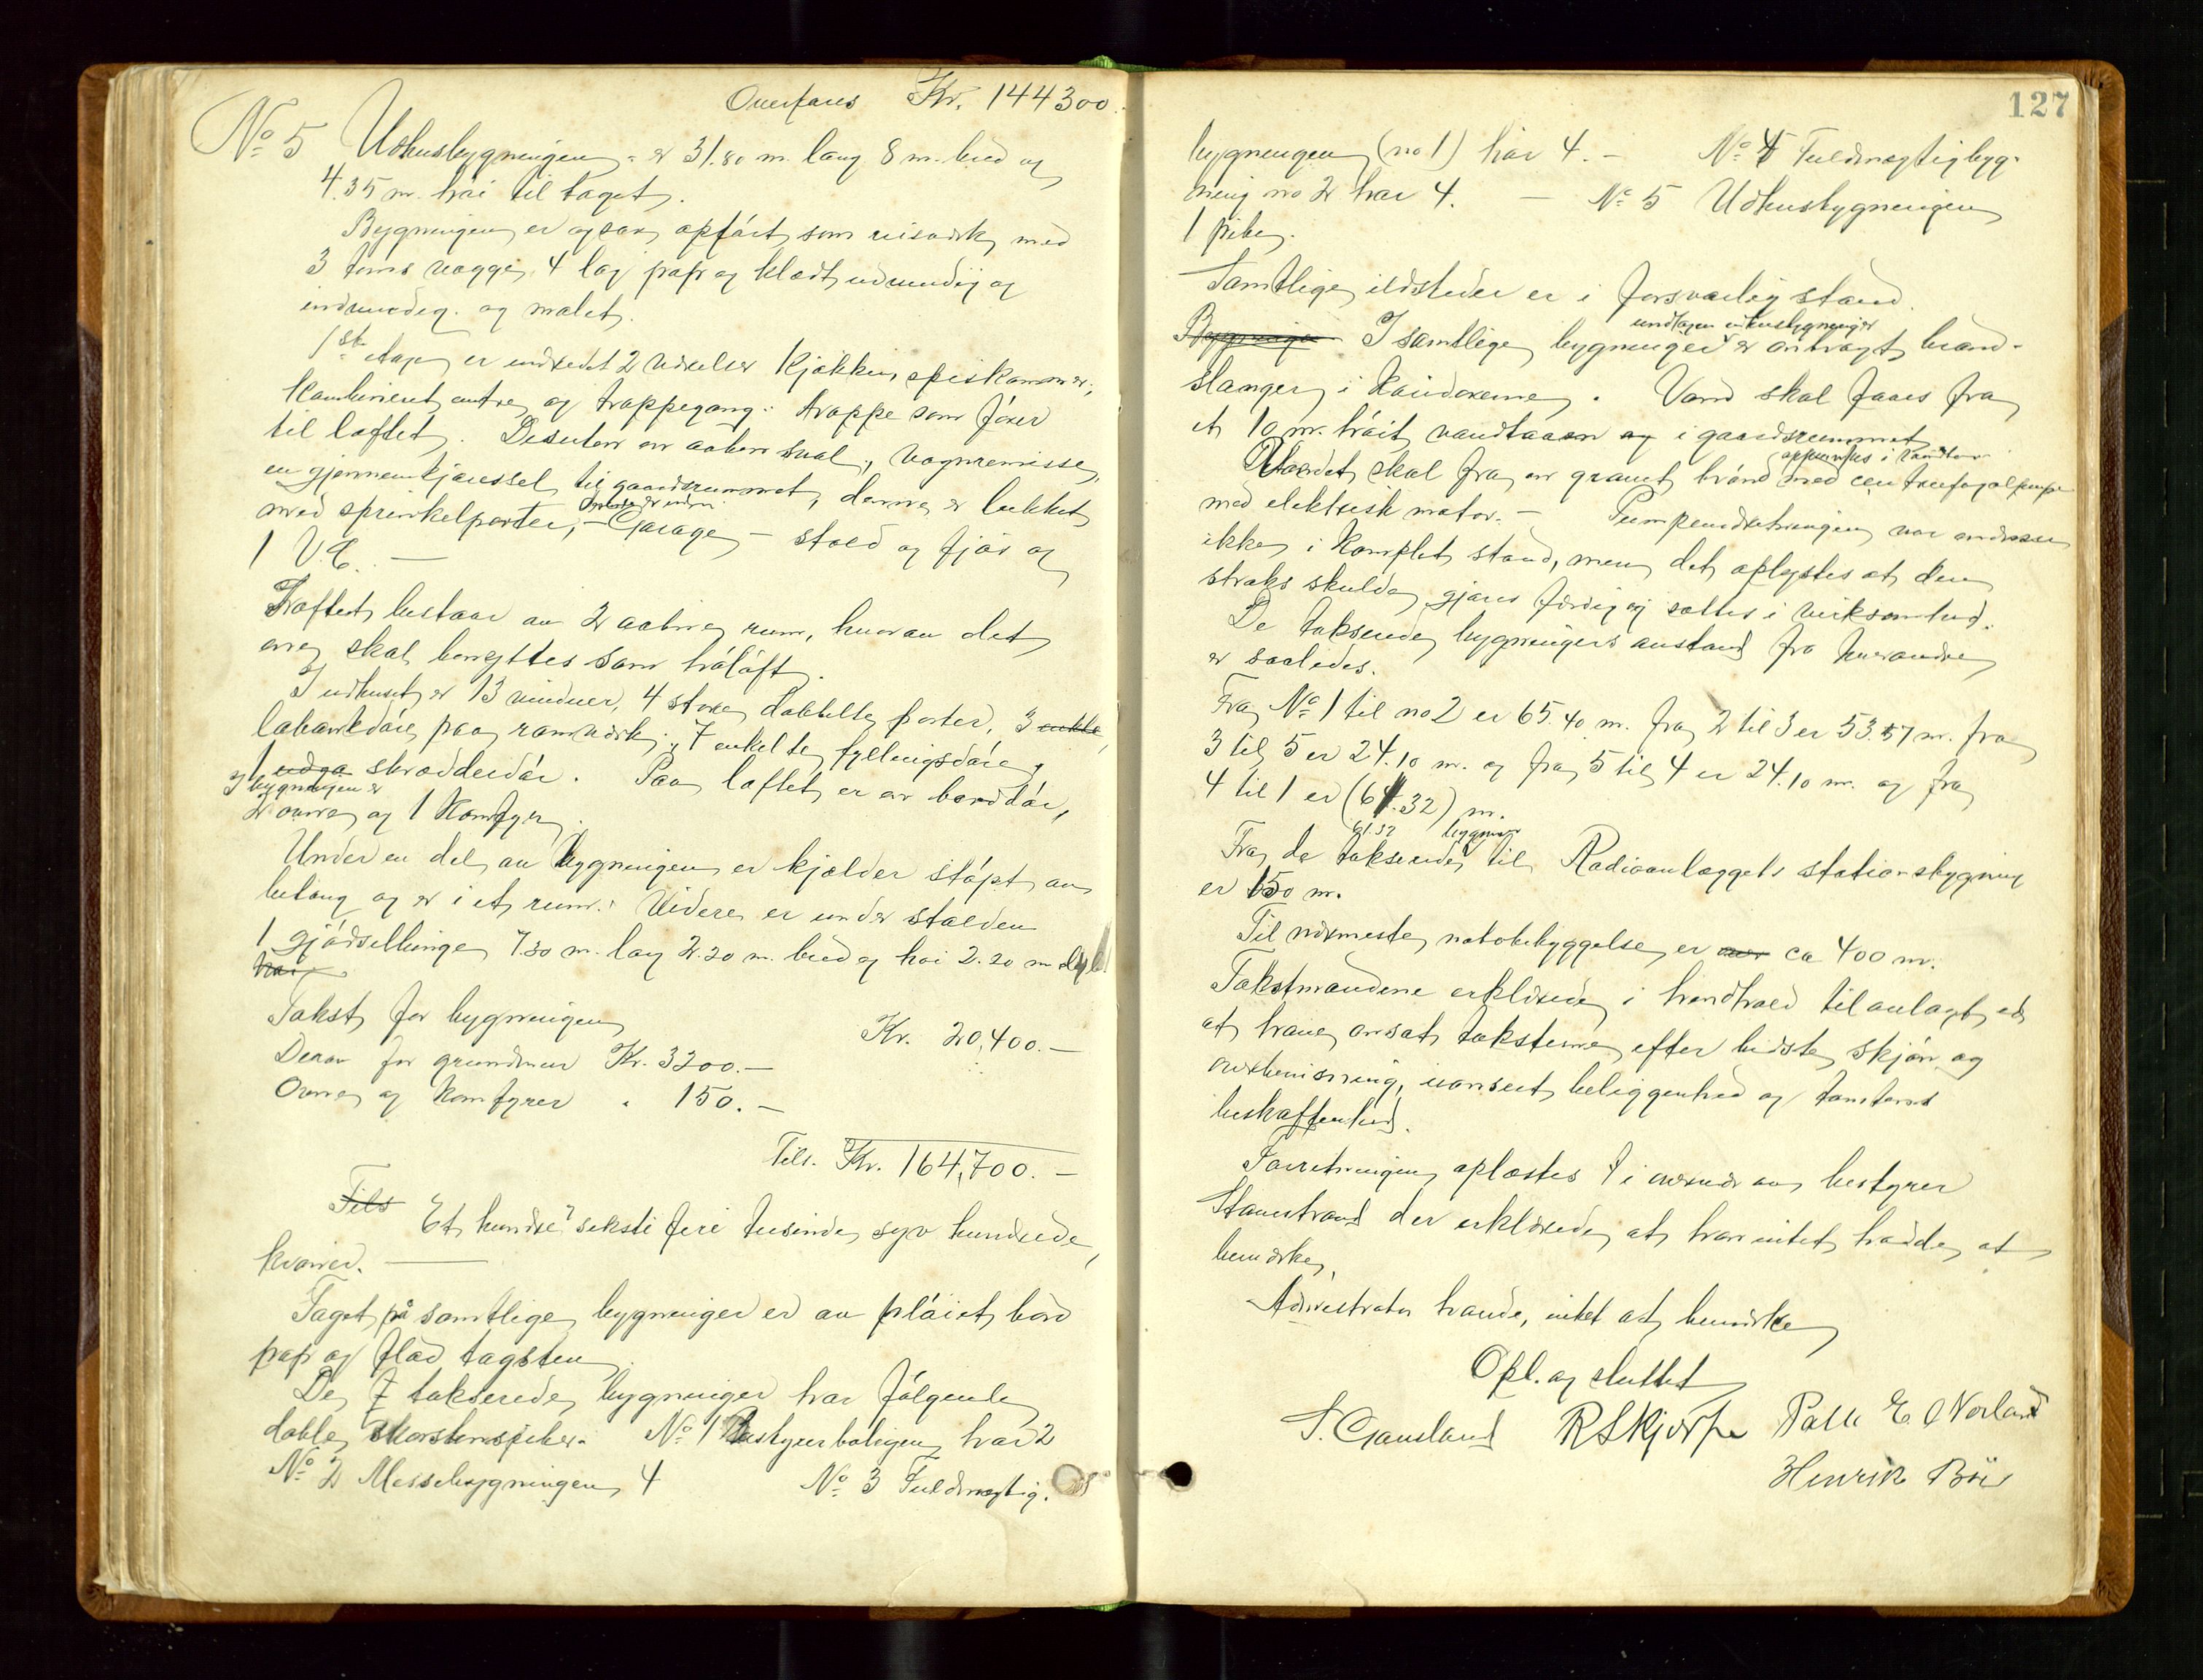 Overføres Kr. 144300.
No 5 Udhusbygningen. er 31.80 m. lang 8 m. bred og
4.35 m. høi til taget.
Bygningen er ogsaa opført som reisverk med
3 toms vægge, 4 lag pap og klædt udvendig og
indvendig. og malet.
1ste etage er indredet 2 værelser kjøkken spiskammer,
kombineret entre og trappegang. trappe som fører
til loftet. Desuten en aaben sval, vognremisse,
en gjennemkjørsel til gaardsrummet, denne er lukket
med sprinkelporter, - Garage - stald og fjøs og
1 V.C. —
Loftet bestaar av 2 aabne rum, hvorav det
ene skal benyttes som høloft.
I udhuset er 13 vinduer, 4 store dobbelte porter, 3 enkle
labankdøre paa ramverk, 7 enkelte fyllingsdøre,
1 skrædderdør. Paa loftet er en borddør,
I bygningen er
2 ovne og 1 Komfyr.
Under en del av bygningen er kjælder støpt av
betong og er i et rum. Videre er under stalden
1 gjødsellinge 7.30 m. lang 2.20 m. bred og høi 2.20 m dyb
høi
Takst for bygningen Kr. 20,400.—
Derav for grundmur Kr. 3200.—
Ovne og Komfyrer " 150.—
Tils. Kr. 164,700.—
Tils Et hundre seksti fire tusinde syv hundrede
kroner. —
Taget på samtlige bygninger er av pløiet bord
pap og flad tagsten.
De 7 takserede bygninger har følgende
doble skorstenspiber. No 1 Bestyrerboligen har 2
No 2 Messebygningen 4 No 3 Fuldmægtig.
127
bygningen (no 1) har 4. - No 4 Fuldmægtigbyg-
ning no 2 har 4. — No 5 Udhusbygningen
1 pibe.
Samtlige ildsteder er i forsvarlig stand.
undtagen udhusbygningen
Bygningen I samtlige bygninger er anbragt brand-
slanger i Koridorerne. Vand skal faaes fra
et 10 m. høit vandtaarn og i gaardsrummet
oppumpes i vandtaarn
Vandet skal fra en gravet brønd med centrefugalpumpe
med elektrisk motor. — Pumpeindretningen var endnu
ikke i komplet stand, men det oplystes at den
straks skulde gjøres færdig og sættes i virksomhed.
De takserede bygningers avstand fra hverandre
er saaledes.
Fra No 1 til no 2 er 65.40 m. fra 2 til 3 er 53.57 m. fra
3 til 5 er 24.10 m. og fra 5 til 4 er 24.10 m. og fra
4 til 1 er (61.32) m.
61.32 bygninger
Fra de takserede til Radioanlæggets stationsbygning
er 150 m.
Til nærmeste nabobebyggelse er over ca 400 m.
Takstmændene erklærede i henhold til avlagt ed
at have ansat taksterne efter bedste skjøn og
overbevisning, uanseet beliggenhed og tomtens
beskaffenhed.
Forretningen oplæstes i overvær av bestyrer
Stauestrand der erklærede at han intet hadde at
bemærke.
Administrator havde intet at bemærke
Opl. og sluttet
S. Gausland R Skjørpe Palle E. Norland
Henrik Bøe